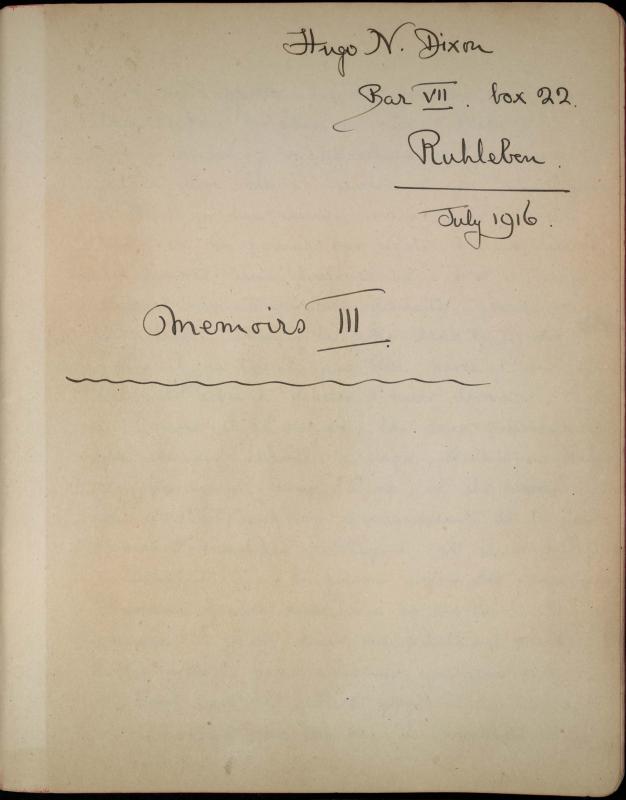 Hugo N. Dixon
Bar VII. box 22.
Ruhleben.
July 1916.
Memoirs III.